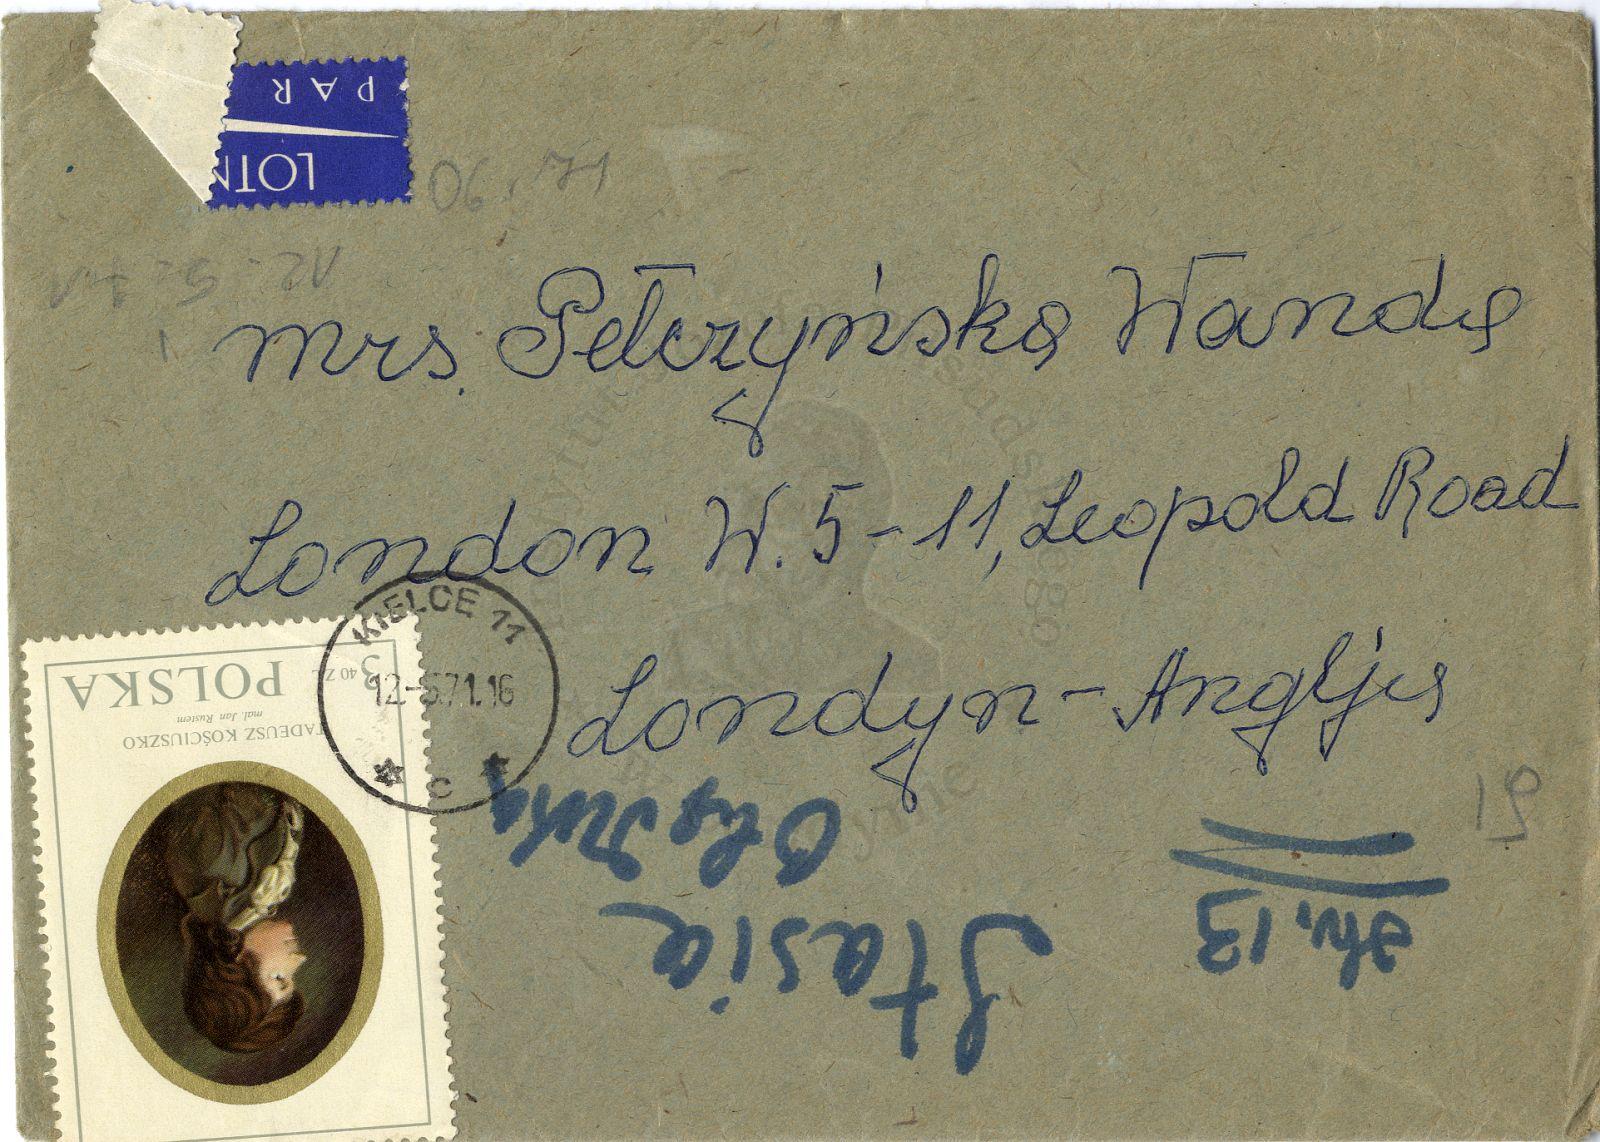 PAR
LOTN
12-5-71
Mrs. Pełczyńska Wanda
London W. 5-11, Leopold Road
Londyn - Anglja
KIELCE 11
12-5.71.16
C
3 40 ZŁ
POLSKA
mal. Jan Rustem
TADEUSZ KOŚCIUSZKO
Stasia
str. 13